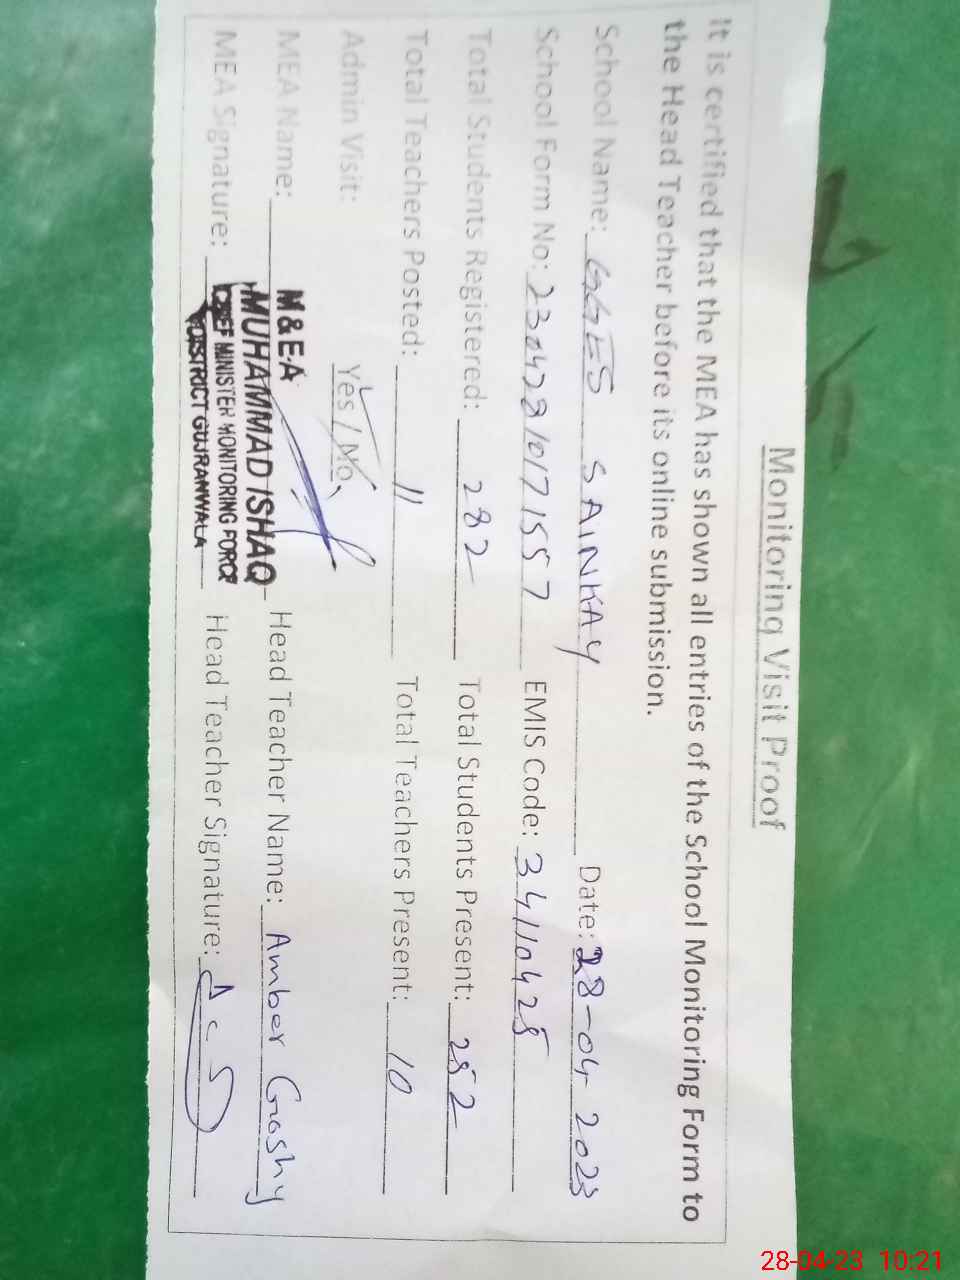 Monitoring Visit Proof
It is certified that the MEA has shown all entries of the School Monitoring Form to
the Head Teacher before its online submission.
School Name: GGES SAINKAY Date: 28-04-2023
School Form No: EMIS Code: 34110428
Total Students Registered: 282 Total Students Present: 252
Total Teachers Posted: 11 Total Teachers Present: 10
Admin Visit: Yes / No
MEA Name: M&E.A Head Teacher Name: Amber
MUHAMMAD ISHAQ
MEA Signature: CHIEF MINISTER MONITORING FORCE Head Teacher Signature:
DISTRICT GUJRANWALA
28-04-23 10:21